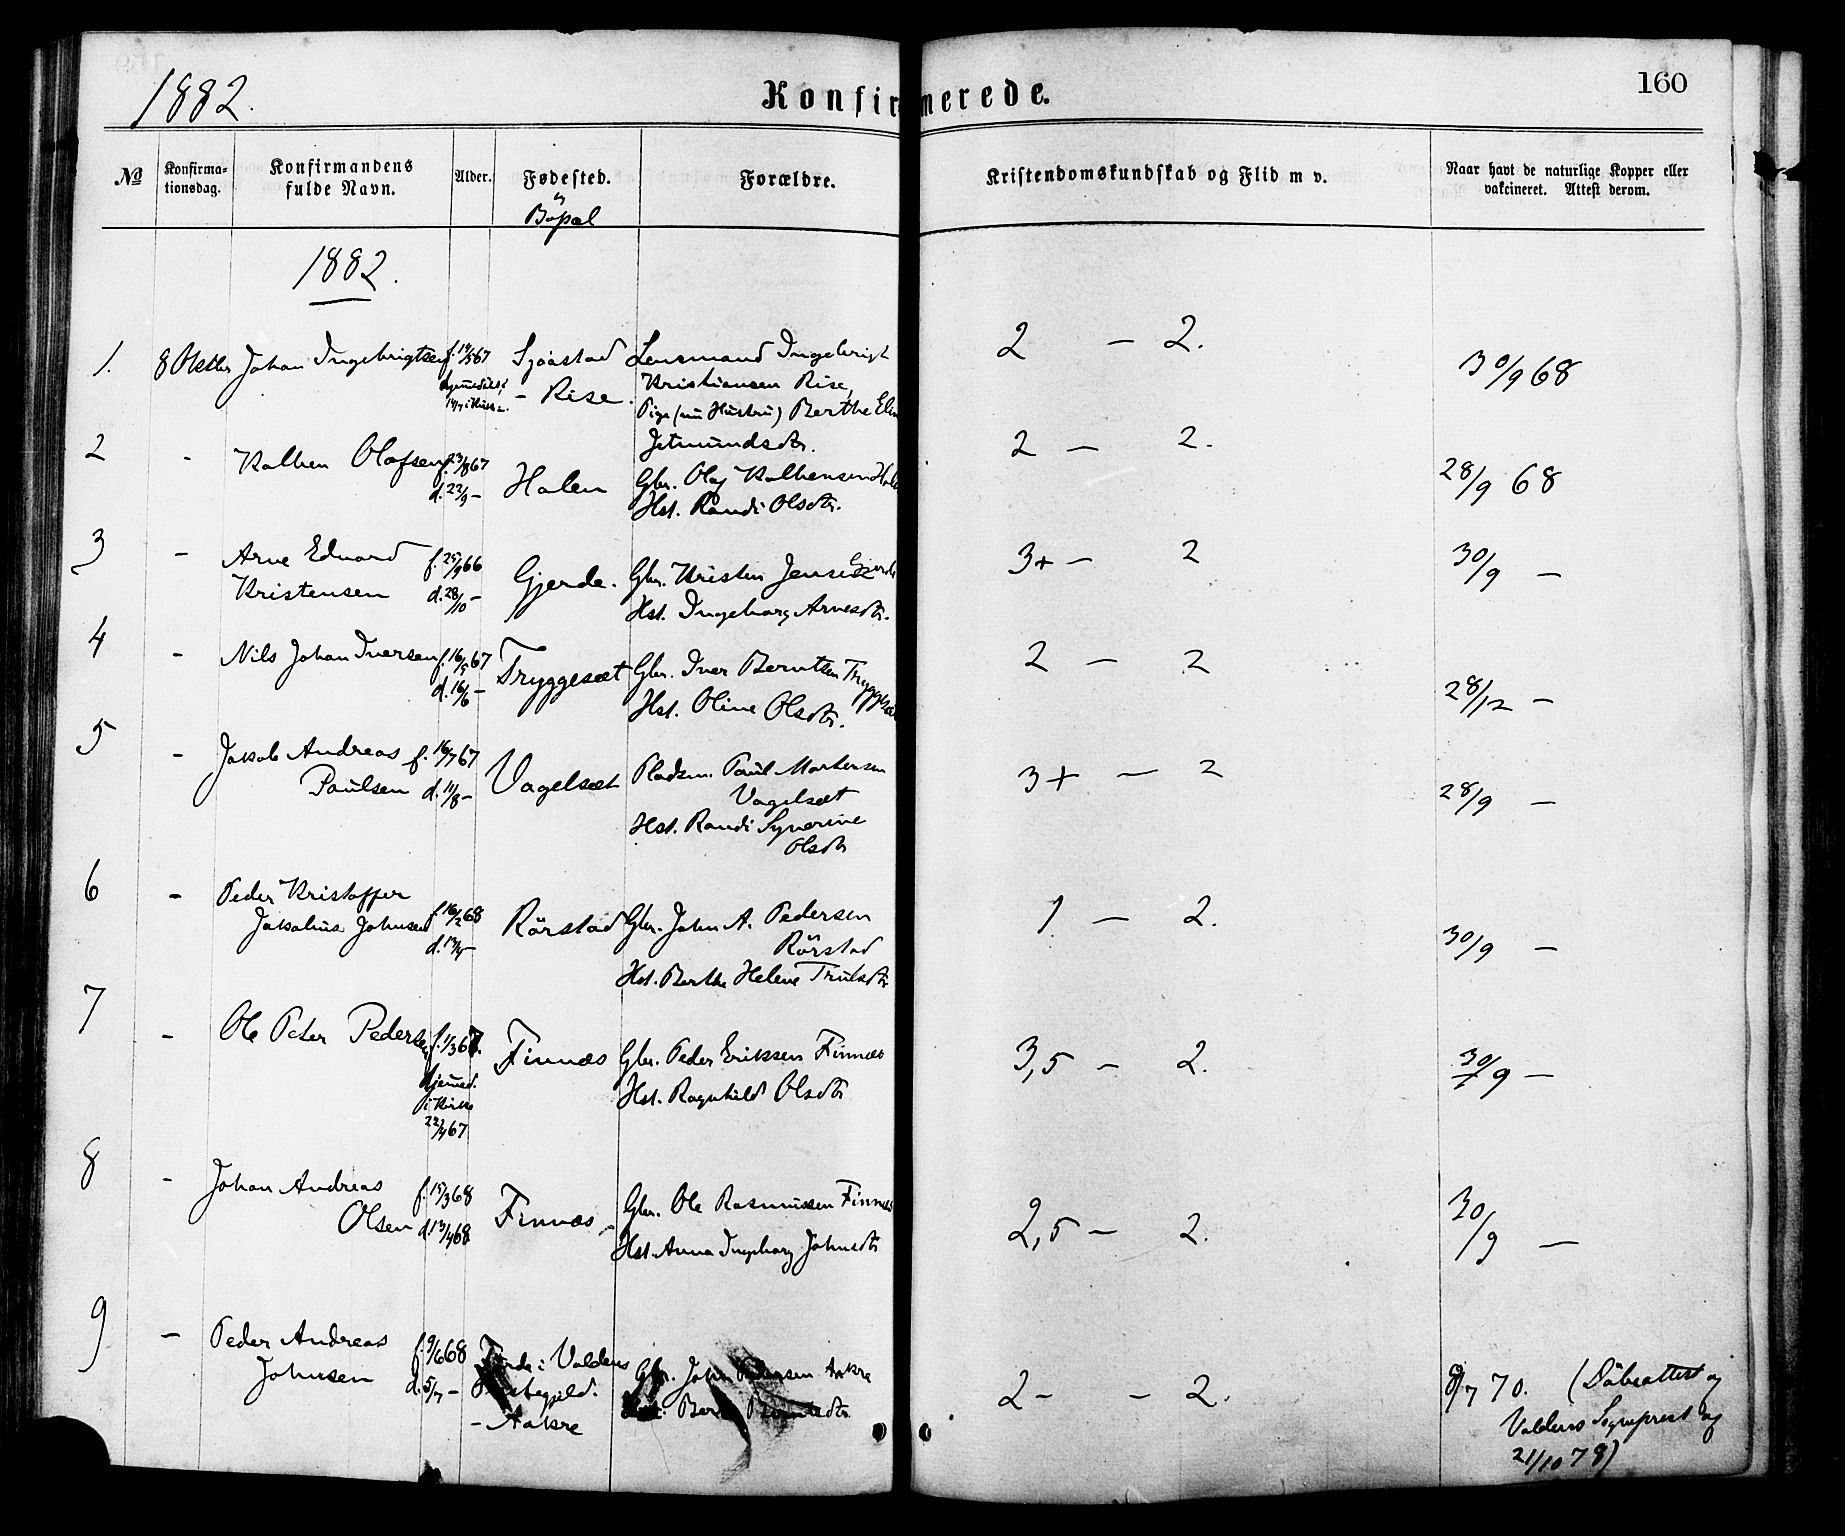 1882.
Konfirmerede.
160
№
Konfirma-
tionsdag.
Konfirmandens
fulde Navn.
Alder.
Fødested.
Forældre.
Kristendomskundskab og Flid m v.
Naar havt de naturlige Kopper eller
vakcineret. Attest derom.
og
Bopæl
1882.
1. 8 Oktbr Johan Ingebrigtsen f. 14/5 67 Sjøastad Lensmand Ingebrigt 2 — 2. 30/9 68
14/7 i Kirke - Rise. Kristiansen Rise,
Pige (nu Hustru) Berthe Elen
Jetmundsdtr.
2 - Kolben Olafsen f. 23/8 67 Holen Gbr. Olaf Kolbensen Holen 2 — 2. 28/9 68
d. 22/9 — Hst. Randi Olsdtr.
3 - Arne Edvard f. 25/9 66 Gjerde. Gbr. Kristen Jensen Gjerde 3+ — 2 30/9 —
Kristensen d. 28/10 — Hst. Ingeborg Arnesdtr.
4 - Nils Johan Iversen f. 16/5 67 Tryggesæt Gbr. Iver Berntsen Tryggesæt 2 — 2 28/12 —
d. 16/6 — Hst. Oline Olsdtr.
5 - Jakob Andreas f. 16/7 67 Vagelsæt Pladsm. Paul Mortensen 3+ — 2 28/9 —
Paulsen d. 11/8 — Vagelsæt
Hst. Randi Synerine
Olsdtr
6 - Peder Kristoffer f. 16/2 68 Rörstad Gbr. John A. Pedersen 1 — 2. 30/9 —
Jakobus Johnsen d. 13/4 — Rörstad
Hst. Berthe Helene Trulsdtr
7 - Ole Peter Pedersen f. 1/3 67. Finnæs Gbr. Peder Eriksen Finnæs 3,5 — 2. 30/9 —
Hjemmed. Hst. Ragnhild Olsdtr
i Kirke
22/4 67
8 - Johan Andreas f. 15/3 68 Finnæs — Gbr. Ole Rasmussen Finnæs 2,5 — 2. 30/9 —
Olsen d. 13/4 68 Hst. Anna Ingeborg Johnsdtr
9 — Peder Andreas f. 9/6 68 i Voldens Gbr. John Pedersen Aakre 2 - — 2. 8/7 70. (Döbsattest og
Johnsen d. 5/7 — Præstegjeld. Voldens Sogneprest
— Aakre 21/10 78)